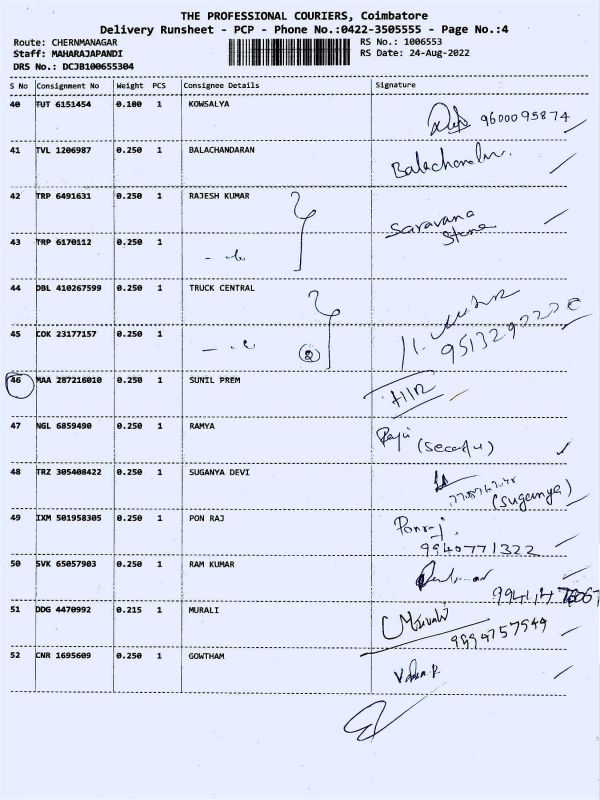 THE PROFESSIONAL COURIERS, Coimbatore
Delivery Runsheet - PCP - Phone No.:0422-3505555 - Page No.:4
Route: CHERNMANAGAR RS No.: 1006553
Staff: MAHARAJAPANDI RS Date: 24-Aug-2022
DRS No.: DCJB100655304
S No Consignment No Weight PCS Consignee Details Signature
40 TUT 6151454 0.180 1 KOWSALYA
9600095874
41 TVL 1206987 0.250 1 BALACHANDARAN
Balachandar.
42 TRP 6491631 0.250 1 RAJESH KUMAR
Saravana
Store
43 TRP 6170112 0.250 1
44 DBL 410267599 0.250 1 TRUCK CENTRAL
45 COK 23177157 0.250 1
2
46 MAA 287216010 0.250 1 SUNIL PREM
47 NGL 6859490 0.250 1 RAMYA
48 TRZ 305408422 0.250 1 SUGANYA DEVI
(Suganya)
49 IXM 501958305 0.250 1 PON RAJ
Ponraj
9940771322
50 SVK 65057903 0.250 1 RAM KUMAR
51 DDG 4470992 0.215 1 MURALI
9994757949
52 CNR 1695609 0.250 1 GOWTHAM